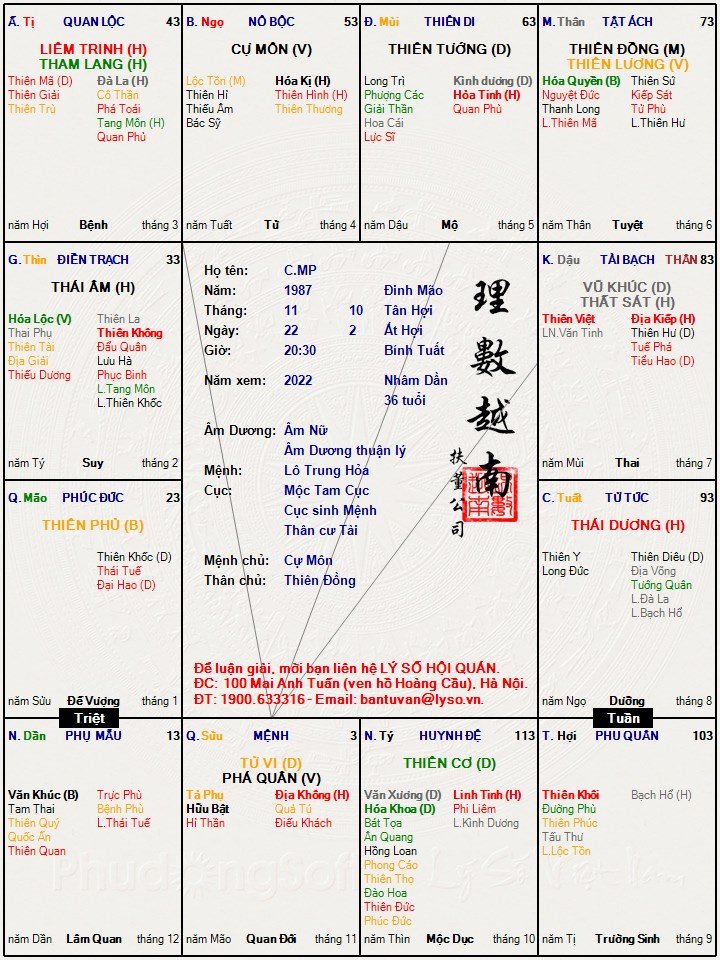 Ấ. Tị QUAN LỘC 43
LIÊM TRINH (H)
THAM LANG (H)
Thiên Mã (D) Đà La (H)
Thiên Giải Cô Thần
Thiên Trù Phá Toái
Tang Môn (H)
Quan Phủ
năm Hợi Bệnh tháng 3
B. Ngọ NÔ BỘC 53
CỰ MÔN (V)
Lộc Tồn (M) Hóa Kị (H)
Thiên Hỉ Thiên Hình (H)
Thiếu Âm Thiên Thương
Bác Sỹ
năm Tuất Tử tháng 4
Đ. Mùi THIÊN DI 63
THIÊN TƯỚNG (D)
Long Trì Kình dương (D)
Phượng Các Hỏa Tinh (H)
Giải Thần Quan Phù
Hoa Cái
Lực Sĩ
năm Dậu Mộ tháng 5
M. Thân TẬT ÁCH 73
THIÊN ĐỒNG (M)
THIÊN LƯƠNG (V)
Hóa Quyền (B) Thiên Sứ
Nguyệt Đức Kiếp Sát
Thanh Long Tử Phù
L.Thiên Mã L.Thiên Hư
năm Thân Tuyệt tháng 6
G. Thìn ĐIỀN TRẠCH 33
THÁI ÂM (H)
Hóa Lộc (V) Thiên La
Thai Phụ Thiên Không
Thiên Tài Đẩu Quân
Địa Giải Lưu Hà
Thiếu Dương Phục Binh
L.Tang Môn
L.Thiên Khốc
năm Tý Suy tháng 2
Họ tên: C.MP
Năm: 1987 Đinh Mão
Tháng: 11 10 Tân Hợi
Ngày: 22 2 Ất Hợi
Giờ: 20:30 Bính Tuất
Năm xem: 2022 Nhâm Dần
36 tuổi
Âm Dương: Âm Nữ
Âm Dương thuận lý
Mệnh: Lô Trung Hỏa
Cục: Mộc Tam Cục
Cục sinh Mệnh
Thân cư Tài
Mệnh chủ: Cự Môn
Thân chủ: Thiên Đồng
理數越南
扶董公司
Để luận giải, mời bạn liên hệ LÝ SỐ HỘI QUÁN.
ĐC: 100 Mai Anh Tuấn (ven hồ Hoàng Cầu), Hà Nội.
ĐT: 1900.633316 - Email: bantuvan@lyso.vn.
K. Dậu TÀI BẠCH THÂN 83
VŨ KHÚC (D)
THẤT SÁT (H)
Thiên Việt Địa Kiếp (H)
LN.Văn Tinh Thiên Hư (D)
Tuế Phá
Tiểu Hao (D)
năm Mùi Thai tháng 7
Q. Mão PHÚC ĐỨC 23
THIÊN PHỦ (B)
Thiên Khốc (D)
Thái Tuế
Đại Hao (D)
năm Sửu Đế Vượng tháng 1
C. Tuất TỬ TỨC 93
THÁI DƯƠNG (H)
Thiên Y Thiên Diêu (D)
Long Đức Địa Võng
Tướng Quân
L.Đà La
L.Bạch Hổ
năm Ngọ Dưỡng tháng 8
Triệt
Tuần
N. Dần PHỤ MẪU 13
Văn Khúc (B) Trực Phù
Tam Thai Bệnh Phù
Thiên Quý L.Thái Tuế
Quốc Ấn
Thiên Quan
năm Dần Lâm Quan tháng 12
Q. Sửu MỆNH 3
TỬ VI (D)
PHÁ QUÂN (V)
Tả Phụ Địa Không (H)
Hữu Bật Quả Tú
Hỉ Thần Điếu Khách
năm Mão Quan Đới tháng 11
N. Tý HUYNH ĐỆ 113
THIÊN CƠ (D)
Văn Xương (D) Linh Tinh (H)
Hóa Khoa (D) Phi Liêm
Bát Tọa L.Kình Dương
Ân Quang
Hồng Loan
Phong Cáo
Thiên Thọ
Đào Hoa
Thiên Đức
Phúc Đức
năm Thìn Mộc Dục tháng 10
T. Hợi PHU QUÂN 103
Thiên Khôi Bạch Hổ (H)
Đường Phù
Thiên Phúc
Tấu Thư
L.Lộc Tồn
năm Tị Trường Sinh tháng 9